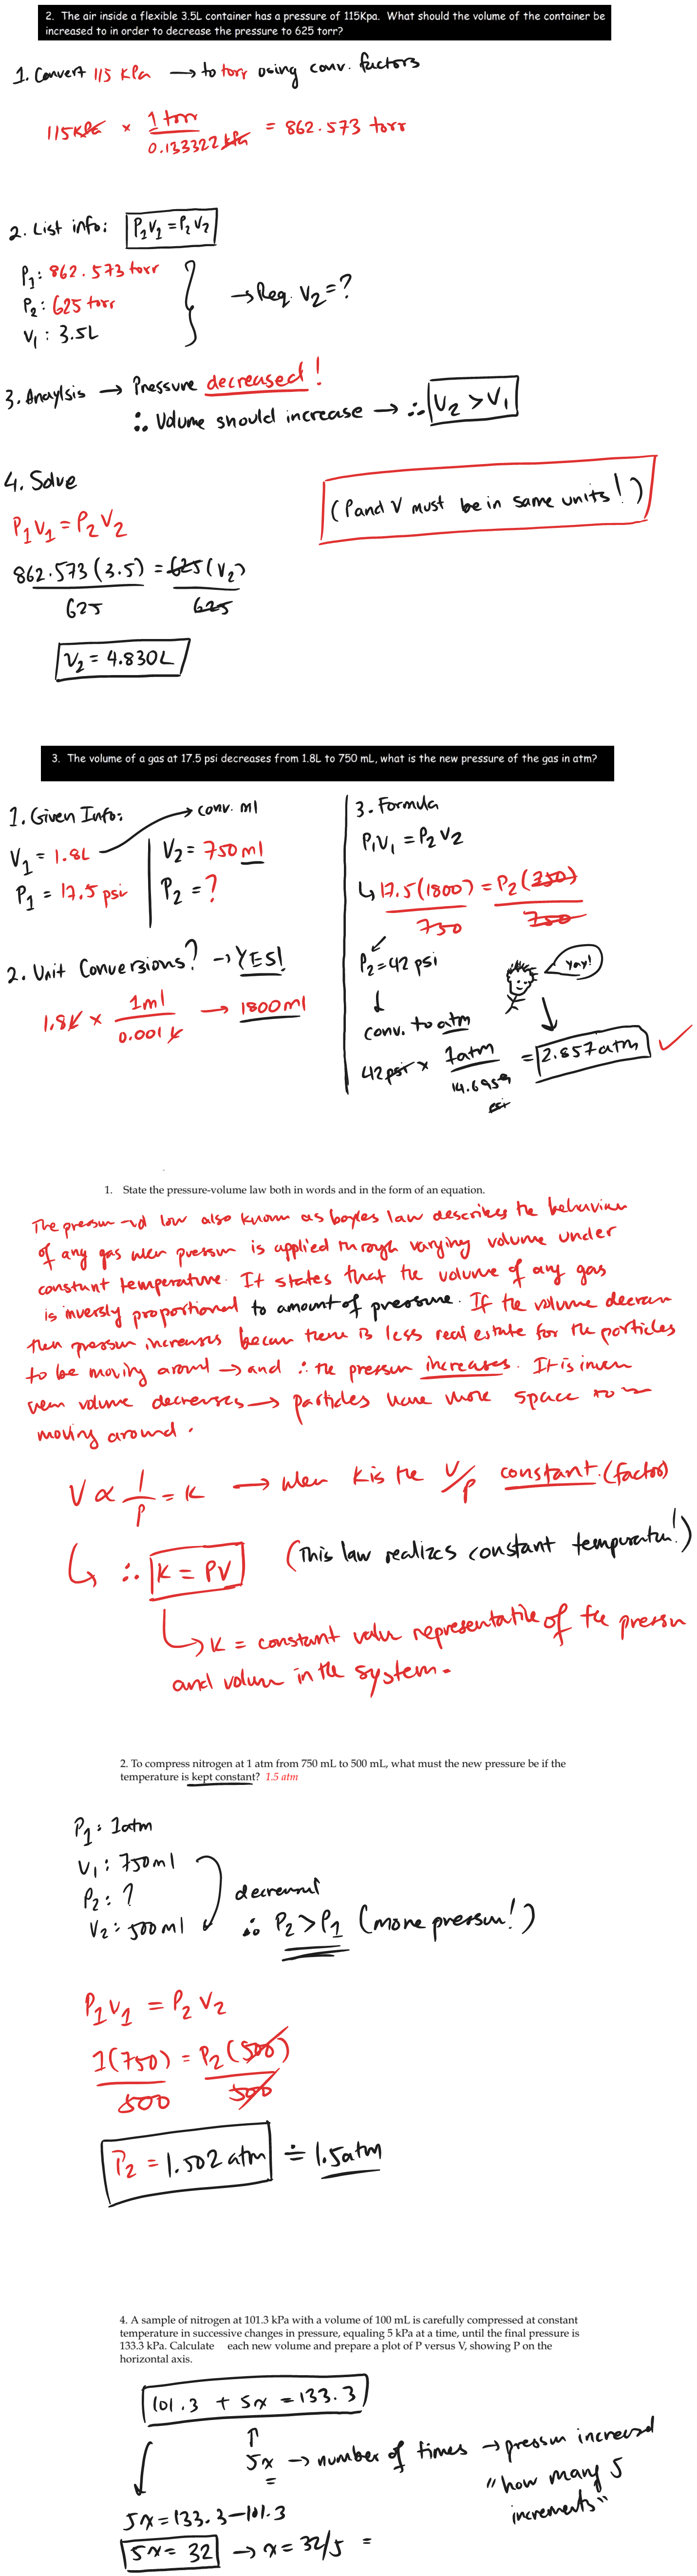 2. The air inside a flexible 3.5L container has a pressure of 115Kpa. What should the volume of the container be
increased to in order to decrease the pressure to 625 torr?
1. Convert 115 kPa → to torr using conv. factors
115 kPa × 1 torr / 0.133322 kPa = 862.573 torr
2. List info: P1V1 = P2V2
P1: 862.573 torr
P2: 625 torr
V1: 3.5L
→ Req. V2 = ?
3. Anaylsis → Pressure decreased!
∴ Volume should increase → ∴ V2 > V1
4. Solve
(P and V must be in same units!)
P1V1 = P2V2
862.573(3.5) / 625 = 625(V2) / 625
V2 = 4.830L
3. The volume of a gas at 17.5 psi decreases from 1.8L to 750 mL, what is the new pressure of the gas in atm?
1. Given Info:
→ conv. ml
V1 = 1.8L
P1 = 17.5 psi
V2 = 750 ml
P2 = ?
2. Unit Conversions? → YES!
1.8L × 1ml / 0.001 L → 1800ml
3. Formula
P1V1 = P2V2
↳ 17.5(1800) / 750 = P2(750) / 750
P2 = 42 psi
yay!
↓
conv. to atm
42 psi × 1atm / 14.6959 psi = 2.857 atm ✓
1. State the pressure-volume law both in words and in the form of an equation.
The law also known as boyles law describes the behaviour
of any gas when pressure is applied through varying volume under
constant temperature. It states that the volume of any gas
is inversly proportional to amount of pressure. If the volume
then pressure increases there is less real estate for the particles
to be moving around → and ∴ the pressure increases. It is
volume decreases → particles have more space to
moving around.
V ∝ 1/P = K → when K is the V/P constant. (factor)
↳ ∴ K = PV (This law realizes constant temperature!)
↳ K = constant value representative of the pressure
and volume in the system.
2. To compress nitrogen at 1 atm from 750 mL to 500 mL, what must the new pressure be if the
temperature is kept constant? 1.5 atm
P1: 1atm
V1: 750ml
P2: ?
V2: 500ml
∴ P2 > P1 (more pressure!)
P1V1 = P2V2
1(750) / 500 = P2(500) / 500
P2 = 1.502 atm ≐ 1.5atm
4. A sample of nitrogen at 101.3 kPa with a volume of 100 mL is carefully compressed at constant
temperature in successive changes in pressure, equaling 5 kPa at a time, until the final pressure is
133.3 kPa. Calculate each new volume and prepare a plot of P versus V, showing P on the
horizontal axis.
101.3 + 5x = 133.3
↑
5x → number of times → pressure increased
"how many 5
increments"
5x = 133.3 - 101.3
5x = 32 → x = 32/5 =